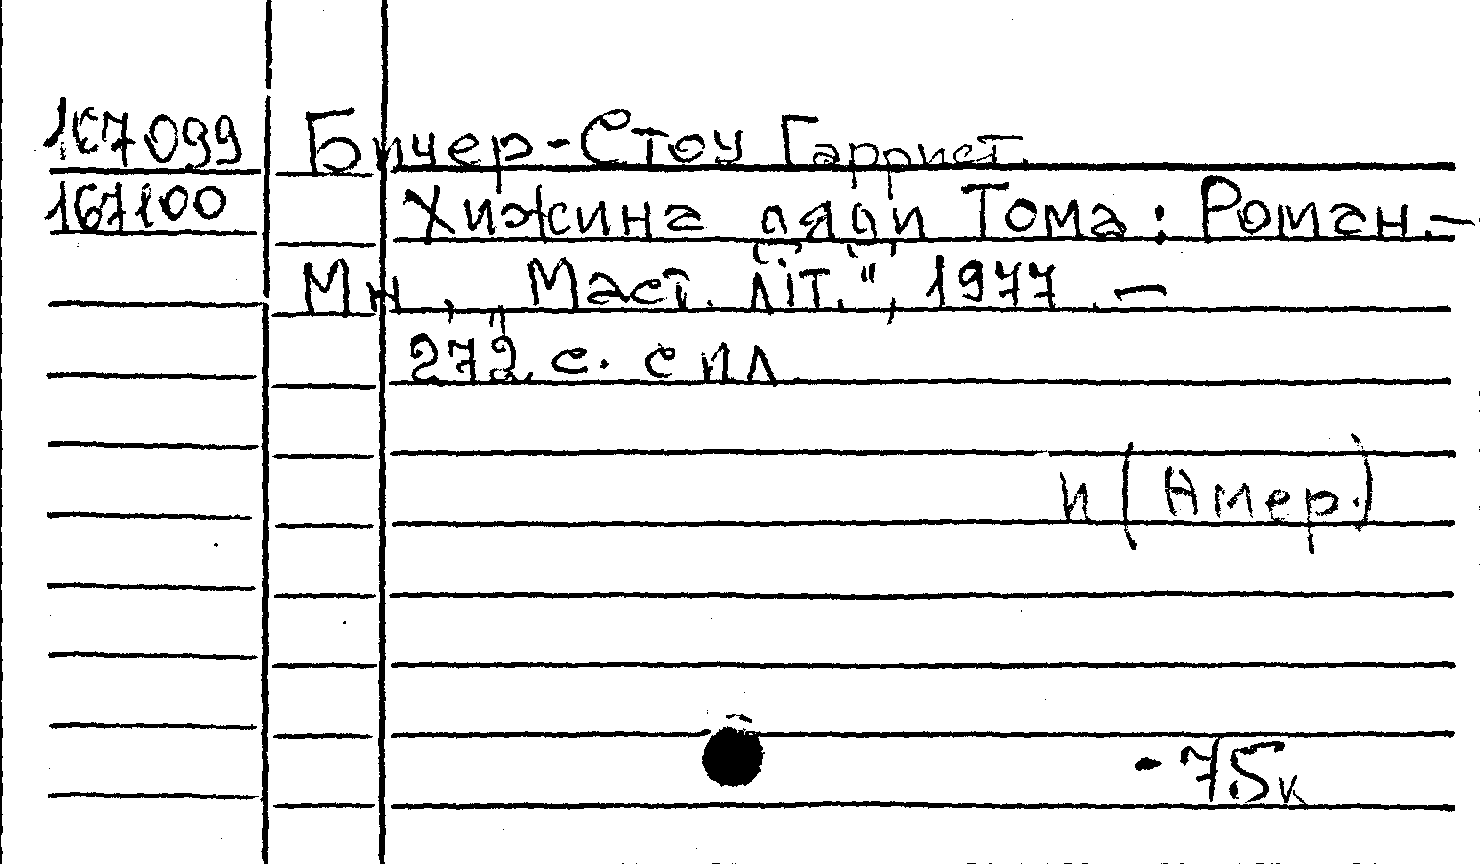 167099 Бичер-Стоу Гарриет.
167100 Хижина дяди Тома: Роман. —
Мн., „Маст. літ.", 1977. —
272 с. с ил.
И (Амер.)
- 75к